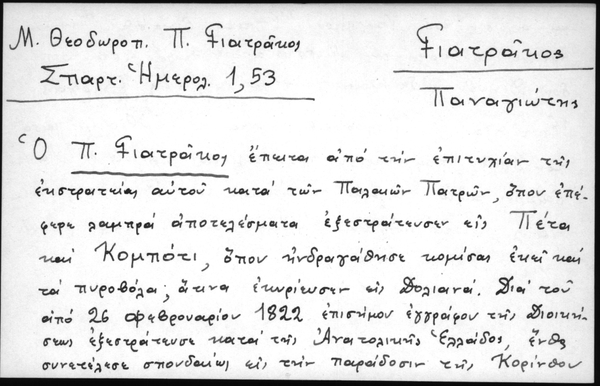 Μ. Θεοδωροπ. Π. Γιατράκος
Γιατράκος
Σπαρτ. Ἡμερολ. 1,53
Παναγιώτης
Ὁ Π. Γιατράκος ἔπειτα ἀπό τήν ἐπιτυχίαν τῆς
ἐκστρατείας αὐτοῦ κατά τῶν Παλαιῶν Πατρῶν, ὅπου ἐπέ-
φερε λαμπρά ἀποτελέσματα ἐξεστράτευσεν εἰς Πέτα
καί Κομπότι, ὅπου ἠνδραγάθησε κομίσας ἐκεῖ καί
τά πυροβόλα, ἅτινα ἐκυρίευσεν εἰς Δολιανά. Διά τοῦ
ἀπό 26 Φεβρουαρίου 1822 ἐπισήμου ἐγγράφου τῆς Διοικη-
σεως ἐξεστράτευσε κατά τῆς Ἀνατολικῆς Ἑλλάδος, ἔνθα
συνετέλεσε σπουδαίως εἰς τήν παράδοσιν τῆς Κορίνθου